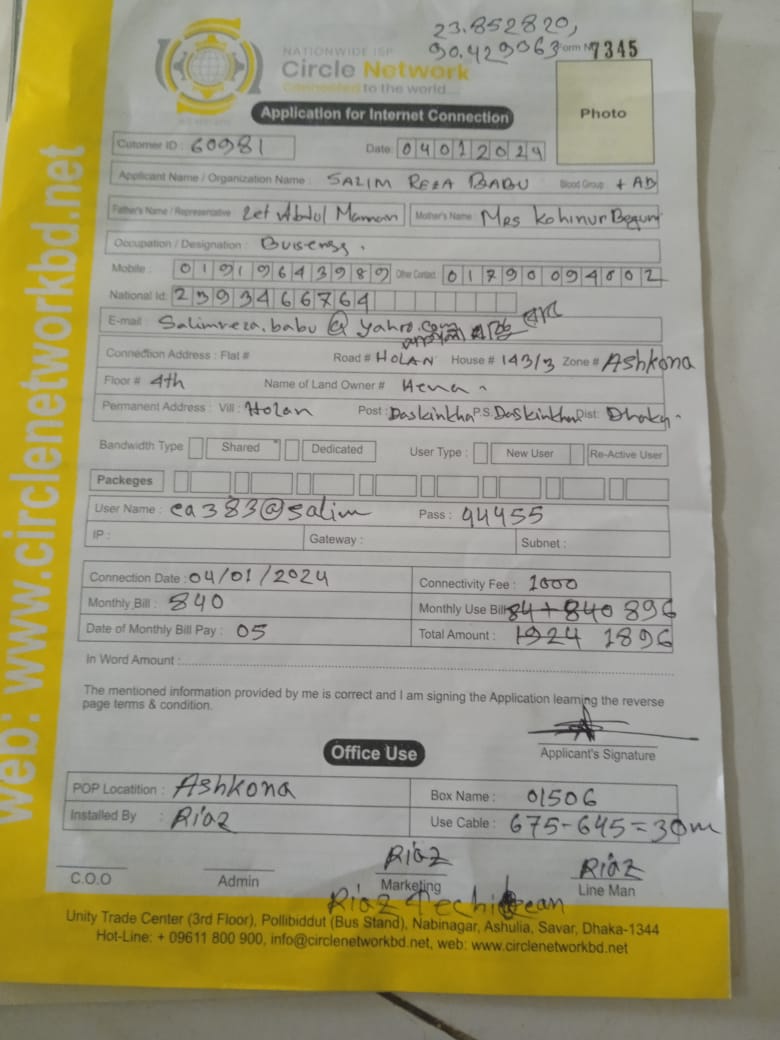 23.852820,
90.429063
Form № 7345
NATIONWIDE ISP
Circle Network
Connected to the world....
Application for Internet Connection
Photo
Cutomer ID : 60981 Date: 04012024
Applicant Name / Organization Name : SALIM REZA BABU Blood Group : + AB
Father's Name / Representative Let Abdul Mannan Mother's Name Mrs Kohinur Begum
Occupation / Designation : Buiseness.
Mobile : 01919643989 Other Contact 01790094802
National Id: 2393466764
E-mail : Salimreza.babu@yahoo.com
Connection Address : Flat # Road # HOLAN House # 143/3 Zone # Ashkona
Floor # 4th Name of Land Owner # Hena
Permanent Address : Vill : Holan Post : Daskinkha P.S. Daskinkha Dist: Dhaka
Bandwidth Type Shared Dedicated User Type : New User Re-Active User
Packeges
User Name : ca383@salim Pass : 44455
IP : Gateway : Subnet :
Connection Date : 04/01/2024 Connectivity Fee : 1000
Monthly Bill : 840 Monthly Use Bill 84+840 896
Date of Monthly Bill Pay : 05 Total Amount : 1924 1896
In Word Amount :
The mentioned information provided by me is correct and I am signing the Application learning the reverse
page terms & condition.
Applicant's Signature
Office Use
POP Locatition : Ashkona Box Name : 01506
Installed By : Riaz Use Cable : 675-645=30m
Riaz Riaz
C.O.O Admin Marketing Line Man
Riaz
Unity Trade Center (3rd Floor), Pollibiddut (Bus Stand), Nabinagar, Ashulia, Savar, Dhaka-1344
Hot-Line: + 09611 800 900, info@circlenetworkbd.net, web: www.circlenetworkbd.net
web: www.circlenetworkbd.net